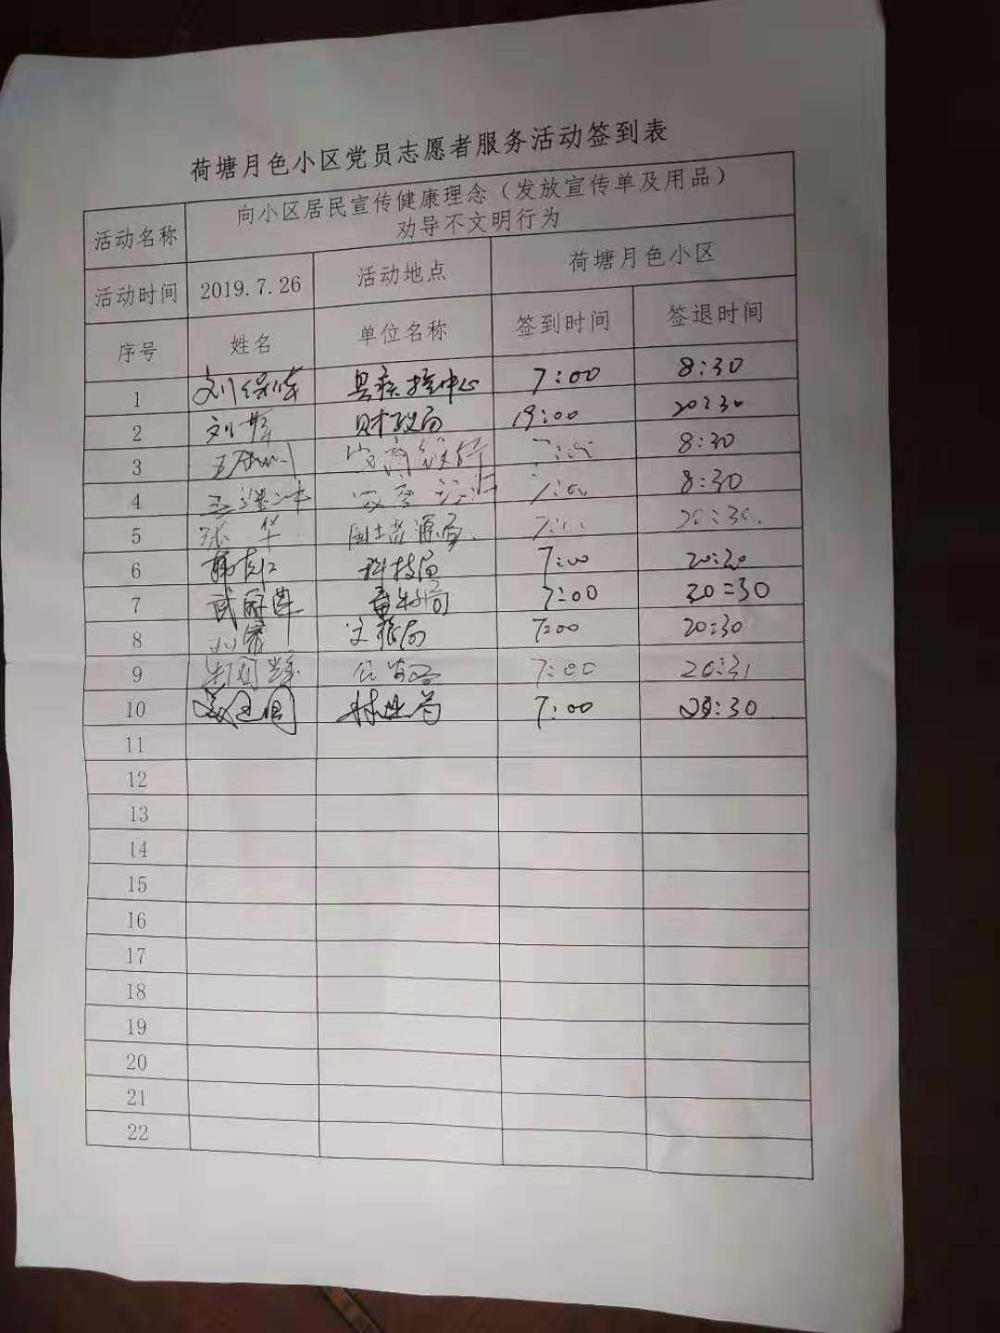 荷塘月色小区党员志愿者服务活动签到表
活动名称 向小区居民宣传健康理念（发放宣传单及用品）
劝导不文明行为
活动时间 2019.7.26 活动地点 荷塘月色小区
序号 姓名 单位名称 签到时间 签退时间
1 刘保 县疾控中心 7:00 8:30
2 刘 财政局 19:00 20:30
3 8:30
4 8:30
5 张华 国土资源局 20:30.
6 科技局 7:00 20:20
7 武 7:00 20:30
8 刘 7:00 20:30
9 7:00 20:31
10 林业局 7:00 :30
11
12
13
14
15
16
17
18
19
20
21
22